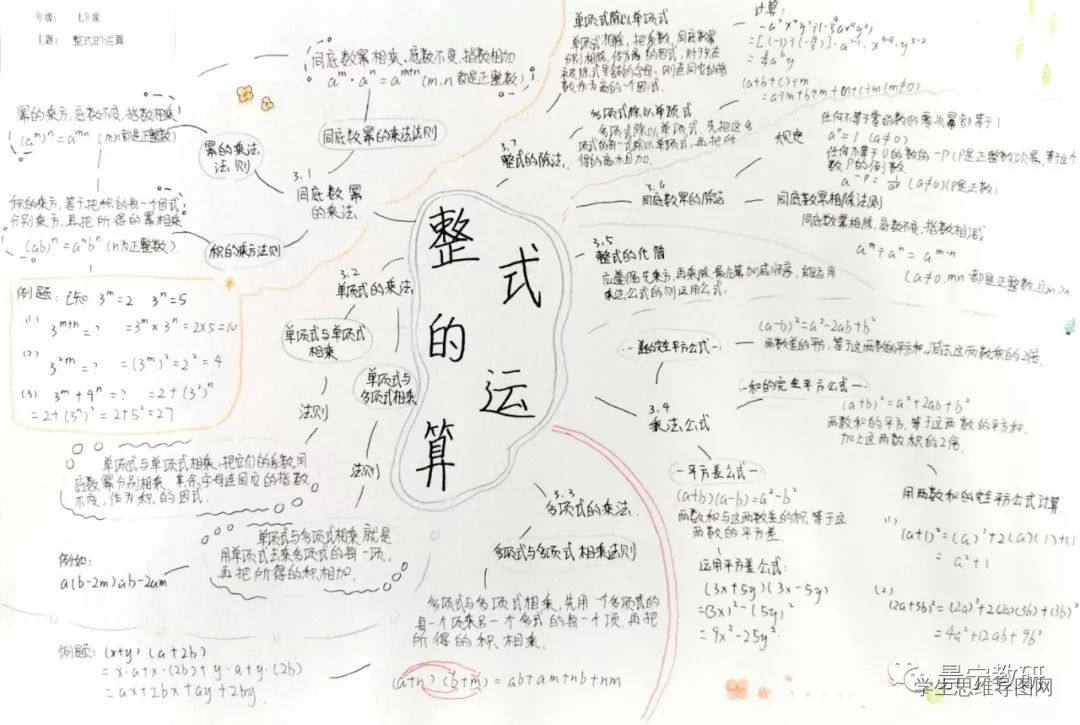 年级： 七年级
主题： 整式的运算
整式的运算
3.1
同底数幂
的乘法
同底数幂的乘法法则
同底数幂相乘、底数不变、指数相加
aᵐ·aⁿ=aᵐ⁺ⁿ (m.n都是正整数)
幂的乘法
法则
幂的乘方，底数不变，指数相乘
(aᵐ)ⁿ=aᵐⁿ (m.n都是正整数)
积的乘方法则
积的乘方，等于把积的每一个因式
分别乘方，再把所得的幂相乘
(ab)ⁿ=aⁿbⁿ (n为正整数)
例题：已知 3ᵐ=2 3ⁿ=5
(1) 3ᵐ⁺ⁿ=? =3ᵐ×3ⁿ=2×5=10
(2) 3²ᵐ=? =(3ᵐ)²=2²=4
(3) 3ᵐ+9ⁿ=? =2+(3²)ⁿ
=2+(3ⁿ)²=2+5²=27
3.2
单项式的乘法
单项式与单项式
相乘
法则
单项式与单项式相乘，把它们的系数、同
底数幂分别相乘，其余字母连同它的指数
不变，作为积的因式.
单项式与
多项式相乘
法则
单项式与多项式相乘就是
用单项式去乘多项式的每一项，
再把所得的积相加.
例如：
a(b-2m)ab-2am
3.3
多项式的乘法
多项式与多项式相乘法则
多项式与多项式相乘，先用一个多项式的
每一个项乘另一个多式的每一个项，再把
所得的积相乘.
(a+n)(b+m)=ab+am+nb+nm
例题：(x+y)(a+2b)
=x·a+x·(2b)+y·a+y·(2b)
=ax+2bx+ay+2by
3.4
乘法公式
差的完全平方公式
(a-b)²=a²-2ab+b²
两数差的平方，等于这两数的平方和，减去这两数积的2倍
和的完全平方公式
(a+b)²=a²+2ab+b²
两数和的平方，等于这两数的平方和，
加上这两数积的2倍
平方差公式
(a+b)(a-b)=a²-b²
两数和与这两数差的积，等于这
两数的平方差.
运用平方差公式：
(3x+5y)(3x-5y)
=(3x)²-(5y)²
=9x²-25y²
用两数和的完全平方公式计算
(1)
(a+1)²=(a)²+2(a)(1)+(1)
=a²+1
(2)
(2a+3b)²=(2a)²+2(2a)(3b)+(3b)²
=4a²+12ab+9b²
3.5
整式的化简
应遵循先乘方，再乘除，最后算加减顺序，能运用
乘法公式的则运用公式.
3.6
同底数幂的除法
规定
任何不等于零的数的零次幂都等于1
a⁰=1 (a≠0)
任何不等于0的数的-P(P是正整数)次幂，等于这个
数P的倒数.
(a≠0)(P是正数)
同底数幂相除法则
同底数幂相除，底数不变，指数相减
aᵐ÷aⁿ=aᵐ⁻ⁿ
(a≠0.mn都是正整数，且m>n
3.7
整式的除法.
单项式除以单项式
单项式相除，把系数、同底数幂
多项式除以单项式
多项式除以单项式，先把这个
多项式的每一项除以单项式，再把所
得的商相加.
(a+b+c)÷m
=a÷m+b÷m+c÷m(m≠0)
计算：
景宁教研
学生思维导图网